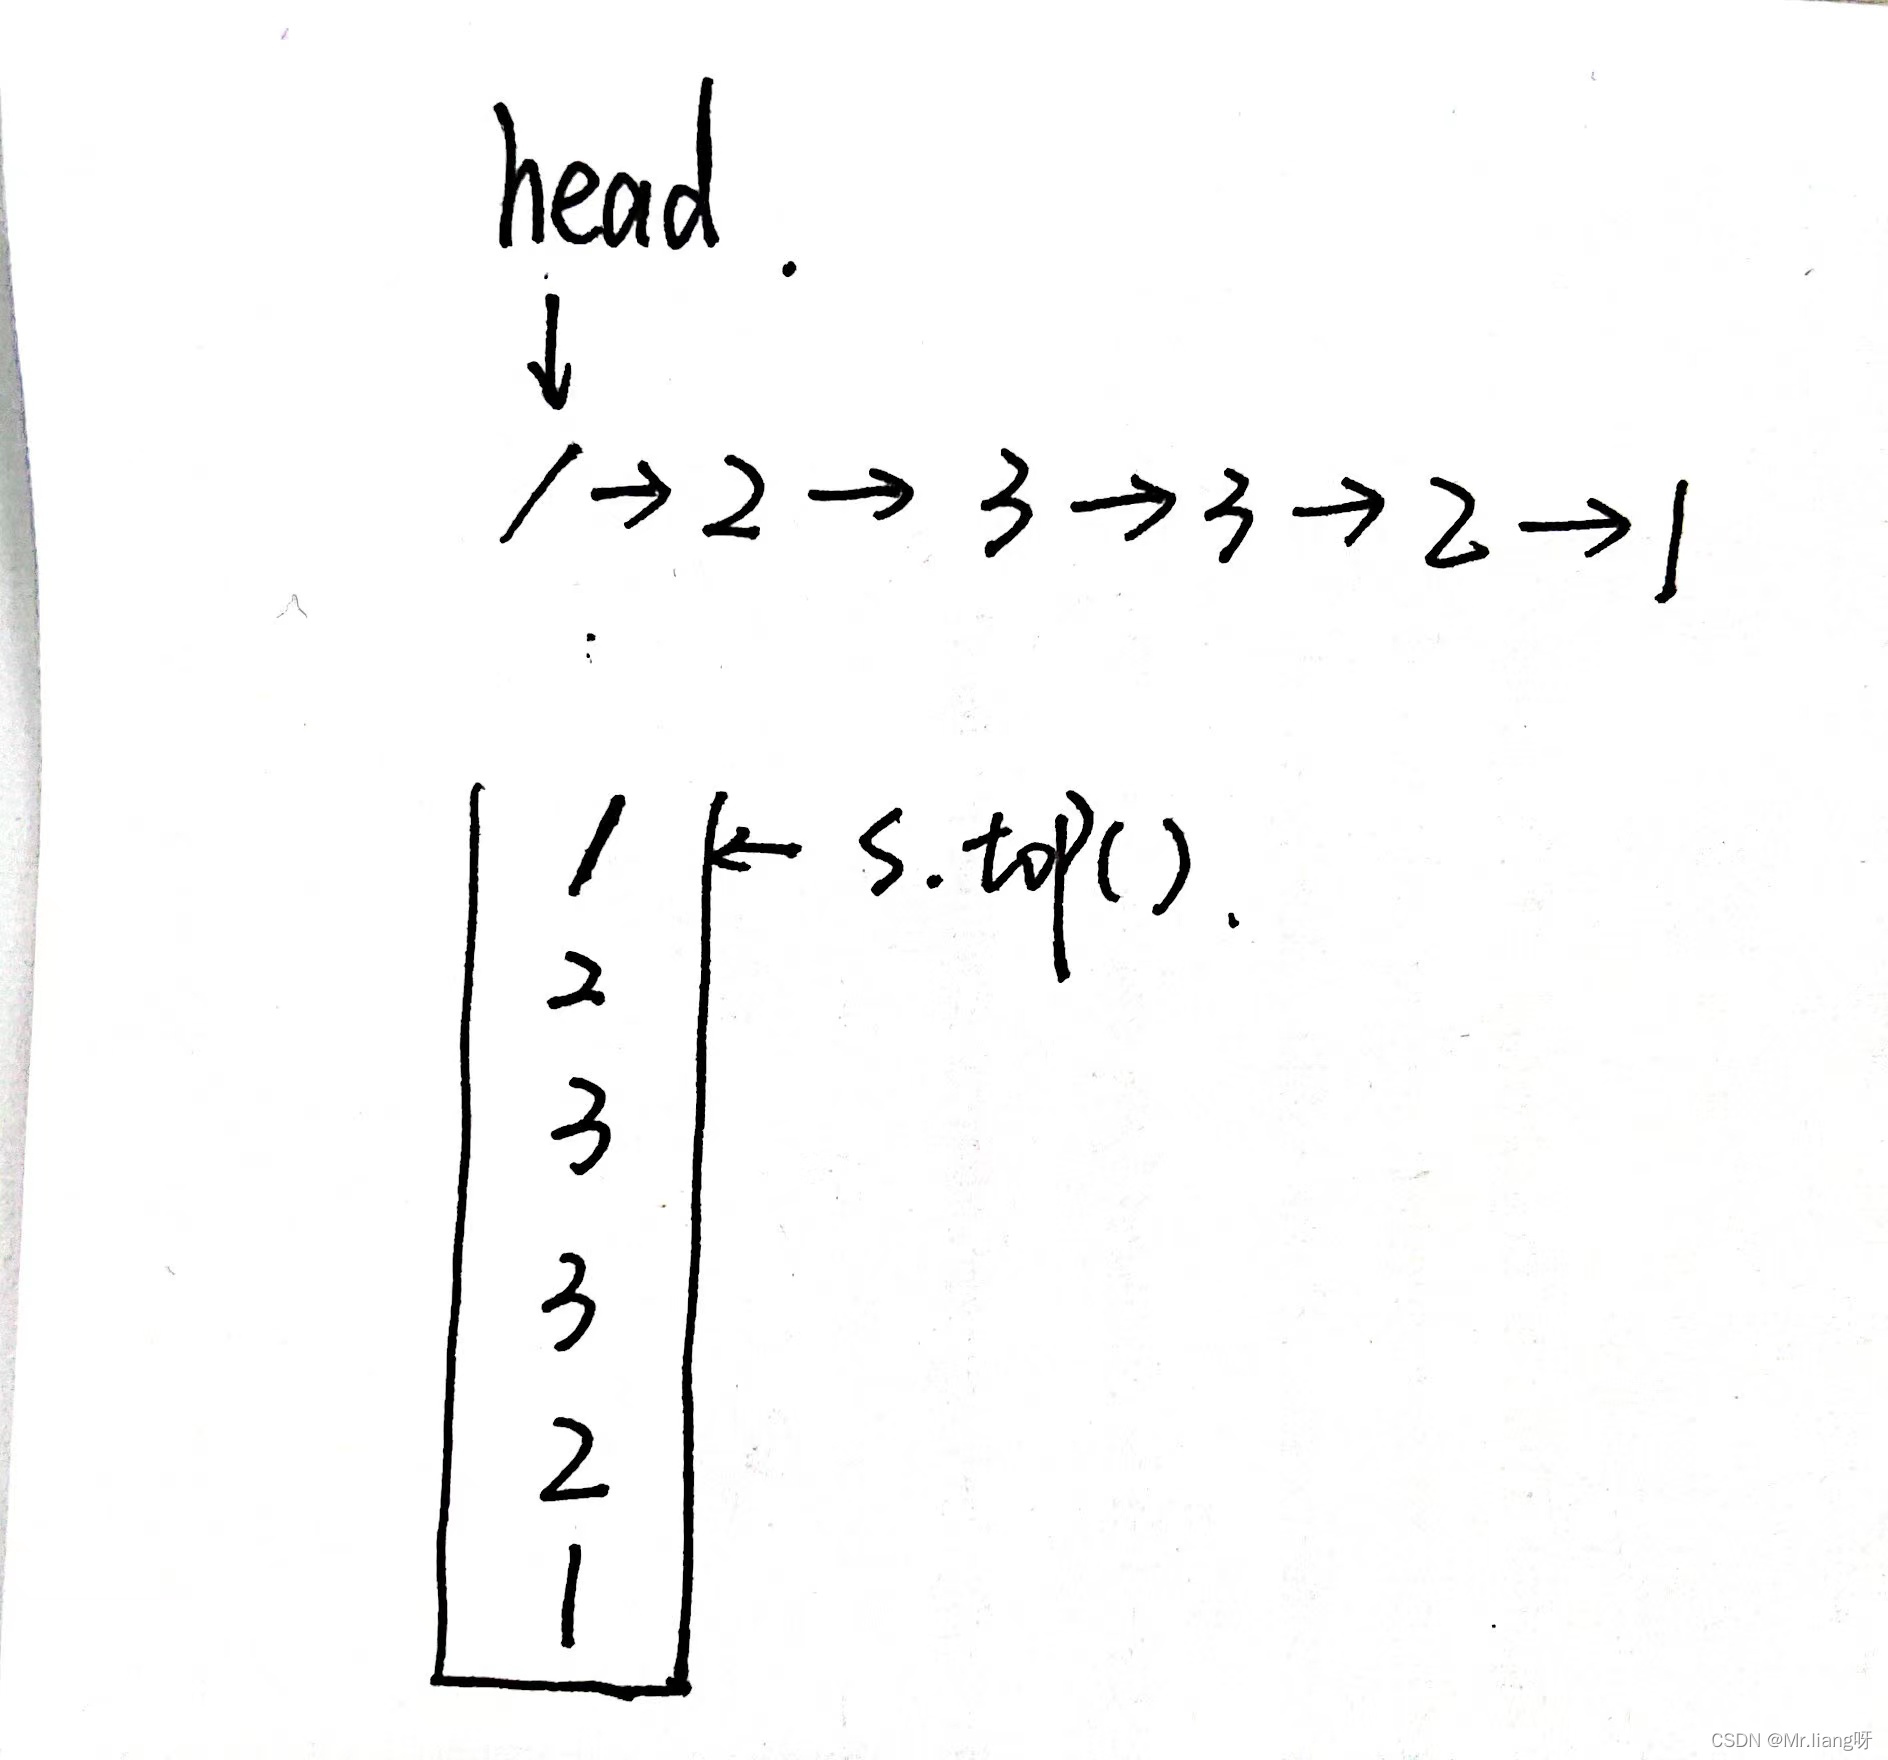 head.
↓
1 → 2 → 3 → 3 → 2 → 1
1 ← s.top().
2
3
3
2
1
CSDN @Mr.liang呀